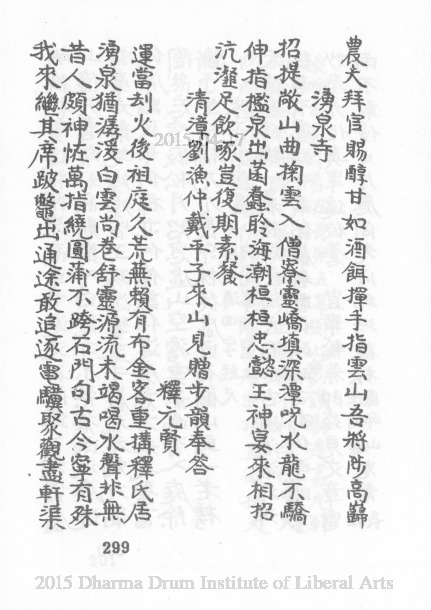 農夫拜官賜醇甘如酒餌揮手指雲山吾將陟高巋
湧泉寺
招提敞山曲掬雲入僧寮靈嶠填深潭咒水龍不驕
伸指檻泉出菌蠢聆海潮桓桓忠懿王神宴來相招
沆瀣足飲啄豈復期素餐
清漳劉漁仲戴平子來山見贈步韻奉答
釋元賢
運當刦火後祖庭久荒蕪賴有布金客重搆釋氏居
湧泉猶潺湲白雲尚卷舒靈源流未竭喝水聲非無
昔人頗神怪萬指繞團蒲不跨石門句古今寧有殊
我來繼其席跛鱉出通途敢追逐電驥聚觀盡軒渠
299
2015 Dharma Drum Institute of Liberal Arts